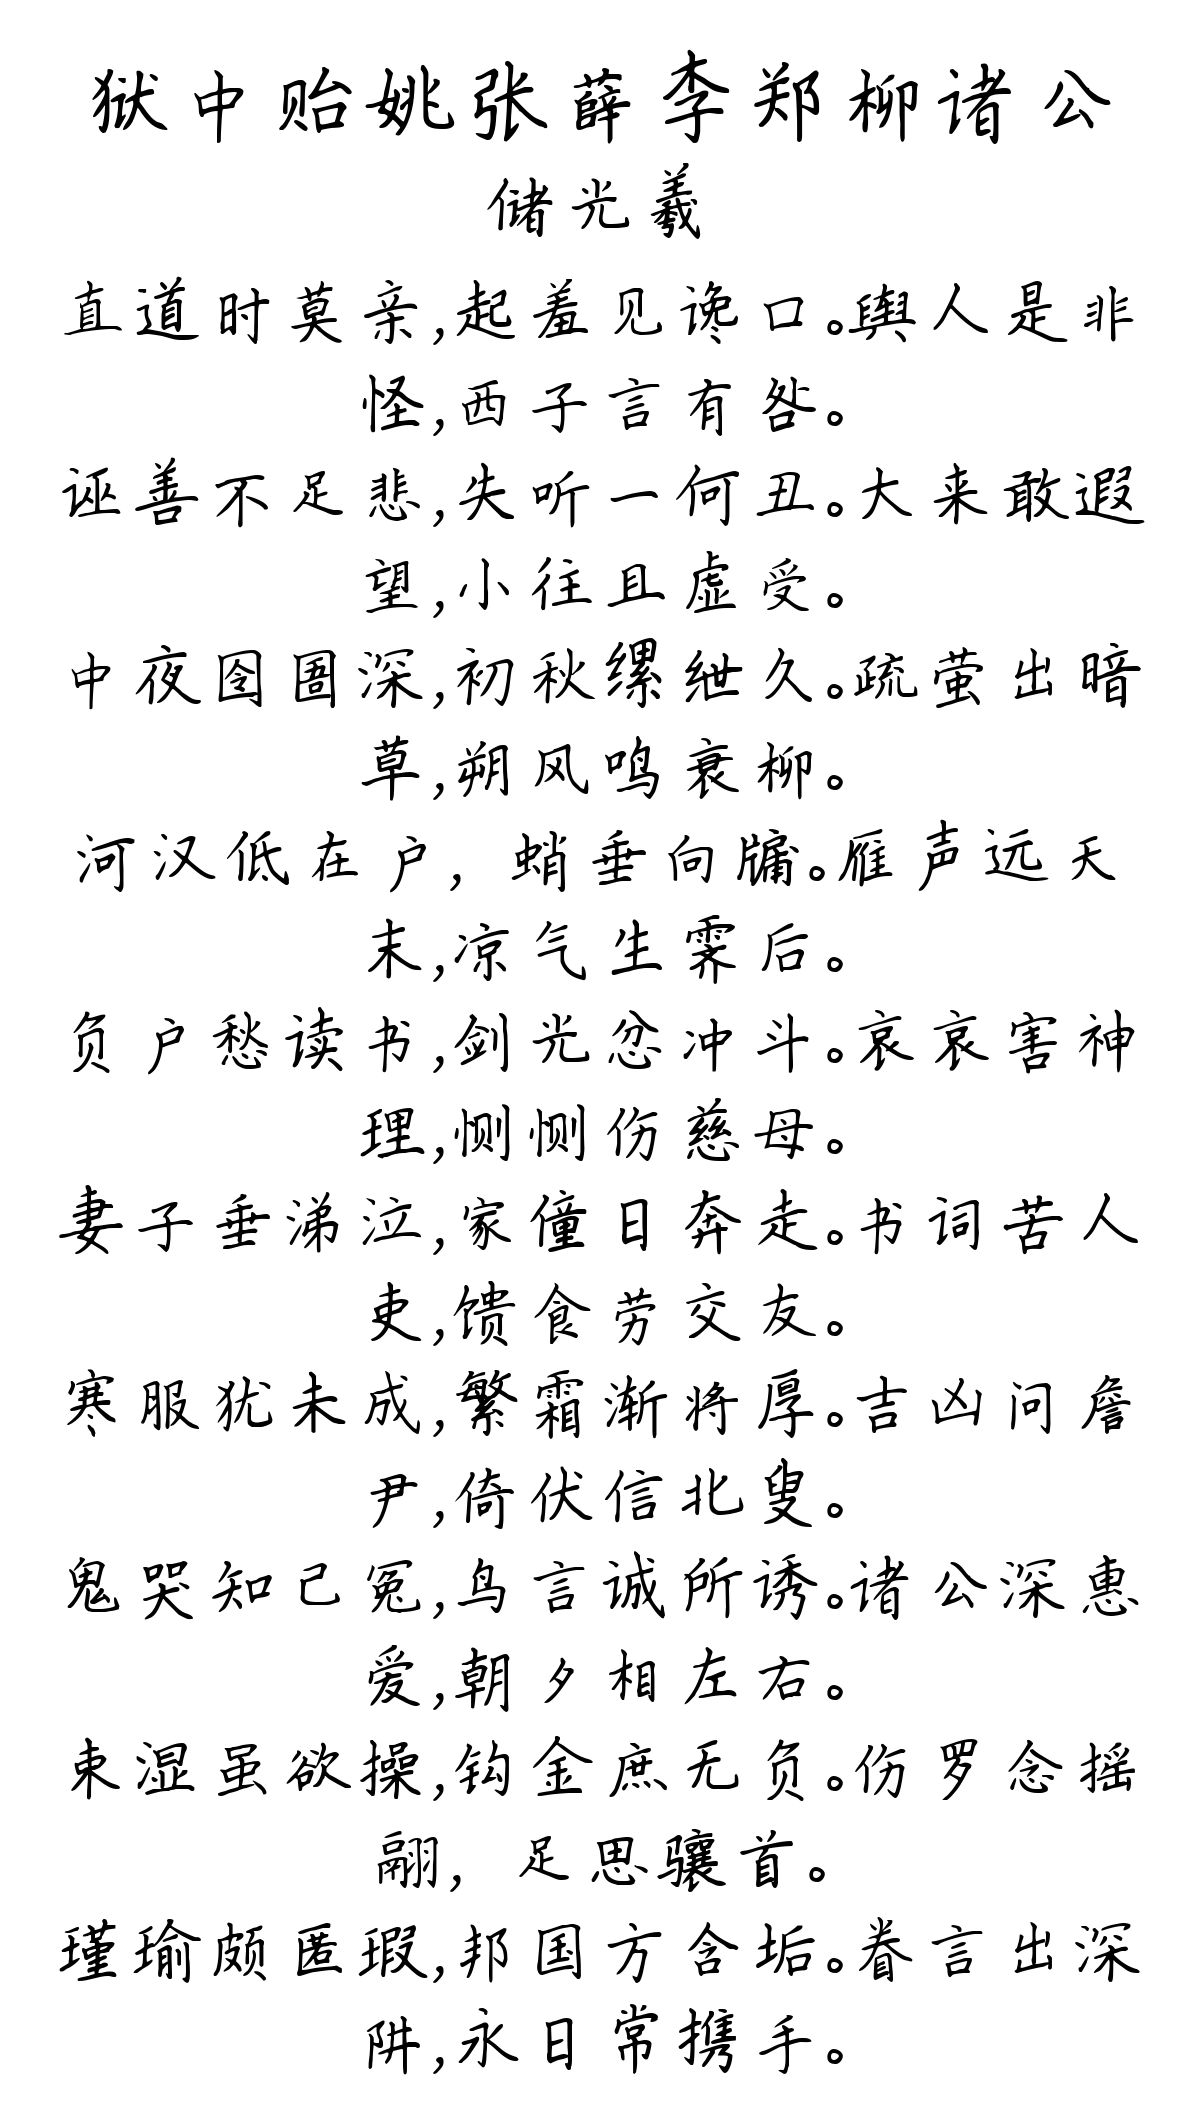 狱中贻姚张薛李郑柳诸公
储光羲
直道时莫亲,起羞见谗口。舆人是非
怪,西子言有咎。
诬善不足悲,失听一何丑。大来敢遐
望,小往且虚受。
中夜囹圄深,初秋缧绁久。疏萤出暗
草,朔风鸣衰柳。
河汉低在户, 蛸垂向牖。雁声远天
末,凉气生霁后。
负户愁读书,剑光忿冲斗。哀哀害神
理,恻恻伤慈母。
妻子垂涕泣,家僮日奔走。书词苦人
吏,馈食劳交友。
寒服犹未成,繁霜渐将厚。吉凶问詹
尹,倚伏信北叟。
鬼哭知己冤,鸟言诚所诱。诸公深惠
爱,朝夕相左右。
束湿虽欲操,钩金庶无负。伤罗念摇
翮, 足思骧首。
瑾瑜颇匿瑕,邦国方含垢。眷言出深
阱,永日常携手。